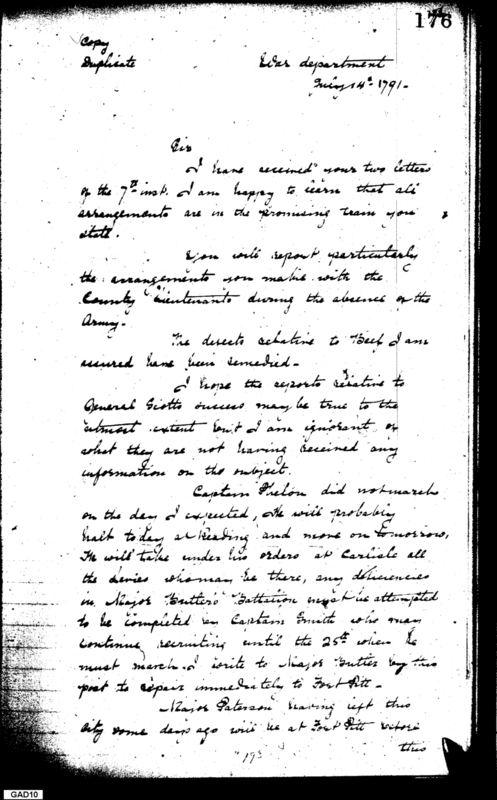 176
Copy
Duplicate
War department
July 14th 1791-
Sir
I have received your two letters
of the 7th inst. I am happy to learn that all
arrangements are in the promising train you
state.
You will report particularly
the arrangements you make with the
County Lieutenants during the absence of the
Army.
The defects relative to Beef I am
assured have been remedied-
I hope the reports relative to
General Scotts success may be true to the
utmost extent but I am ignorant of
what they are not having received any
information on the subject.
Captain Phelon did not march
on the day I expected, He will probably
halt today at Reading and move on tomorrow,
He will take under his orders at Carlisle all
the levies who may be there, any deficiencies
in Major Butlers Battalion must be attempted
to be completed by Captain Smith who may
continue recruiting until the 25th when he
must march. I write to Major Butler by this
post to repair immediately to Fort Pitt-
Major Paterson having left this
city some days ago will be at Fort Pitt before
this
GAD10